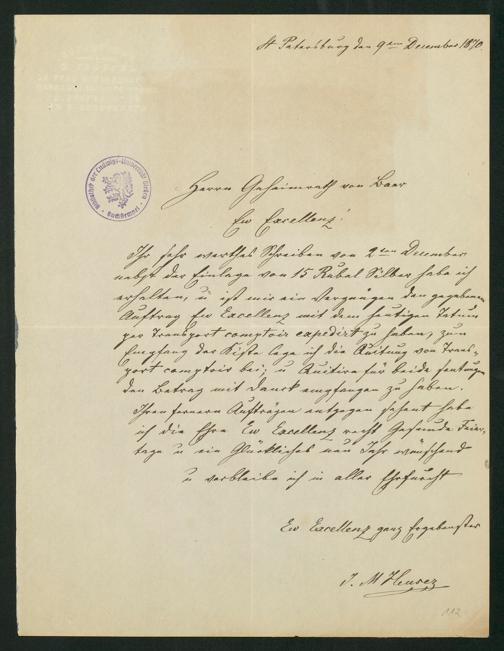 St Petersburg den 9ten December 1870.
Bibliothek der Ludwigs-Universität Giessen
Herrn Geheimrath von Baer
Ew Excellenz!
Ihr sehr werthes Schreiben von 2ten December
nebst der Einlage von 15 Rubel Silber habe ich
erhalten, u ist mir ein Vergnügen den gegebenen
Auftrag Ew Excellenz mit dem heutigen Datum
per Transport comptoir expedirt zu haben, zum
Empfang der Kiste lege ich die Quitung von Trans-
port comptoir bei; u Quitire für beide
den Betrag mit Danck empfangen zu haben.
Ihren fernern Aufträgen entgegen sehent habe
ich die Ehre Ew Excellenz recht Gesunde Feier-
tage u ein Glückliches neu Jahr wünschend
u verbleibe ich in aller Ehrfurcht
Ew Excellenz ganz Ergebenster
J. M Heuser
112